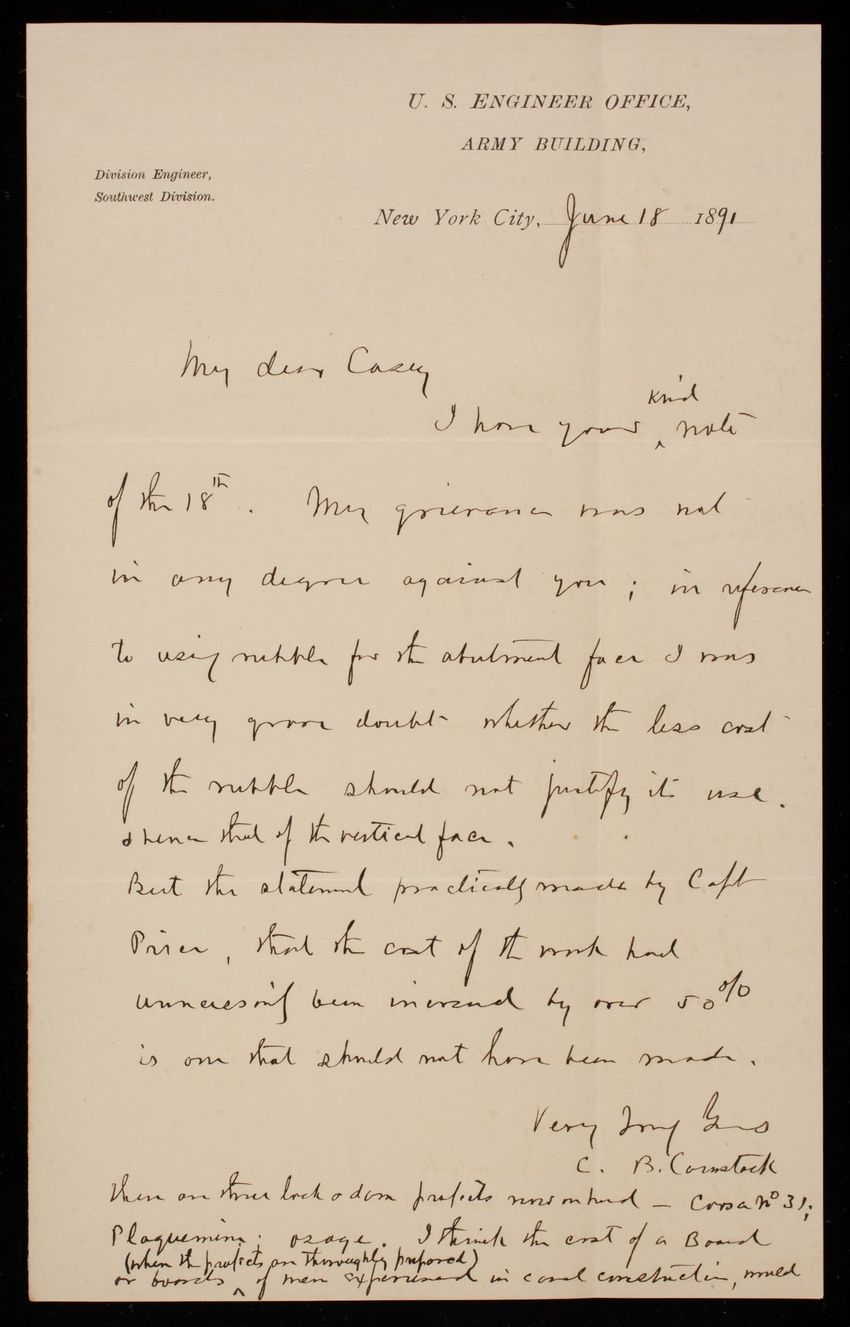 U. S. ENGINEER OFFICE,
ARMY BUILDING,
Division Engineer,
Southwest Division.
New York City, June 18 1891
My dear Casey
I have your ^ kind note
of the 18th. My grievance was not
in any degree against you; in reference
to using rubble for the abutment face I was
in very grave doubt whether the less cost
of the rubble should not justify its use.
& hence that of the vertical face.
But the statement practically made by Capt
that the cost of the work had
unnecessarily been increased by over 50%
is one that should not have been made.
Very Truly Yours
C. B. Comstock
There are three lock & dam projects now on hand — Coosa No 31;
Plaquemine; Osage. I think the cost of a Board
(when the projects are thoroughly prepared)
or boards ^ of men experienced in canal construction, would